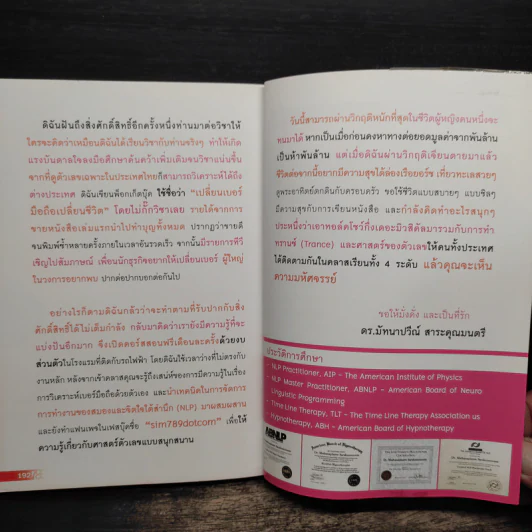 ดิฉันฝันถึงสิ่งศักดิ์สิทธิ์อีกครั้งหนึ่งท่านมาต่อวิชาให้
ใครจะคิดว่าเหมือนดิฉันได้เรียนวิชากับท่านจริงๆ ทำให้เกิด
แรงบันดาลใจลงมือศึกษาค้นคว้าเพิ่มเติมจนวิชาแน่นขึ้น
จากที่ดูตัวเลขเฉพาะในประเทศไทยก็สามารถวิเคราะห์ได้ถึง
ต่างประเทศ ดิฉันเขียนพ็อกเก็ตบุ๊ค ใช้ชื่อว่า "เปลี่ยนเบอร์
มือถือเปลี่ยนชีวิต" โดยไม่กั๊กวิชาเลย รายได้จากการ
ขายหนังสือเล่มแรกนำไปทำบุญทั้งหมด ปรากฏว่าขายดี
จนพิมพ์ซ้ำหลายครั้งภายในเวลาอันรวดเร็ว จากนั้นมีรายการทีวี
เชิญไปสัมภาษณ์ เพื่อนนักธุรกิจขอยากให้เปลี่ยนเบอร์ ผู้ใหญ่
ในวงการอยากพบ ปากต่อปากบอกต่อกันไป
อย่างไรก็ตามดิฉันกลัวว่าจะทำตามที่รับปากกับสิ่ง
ศักดิ์สิทธิ์ได้ไม่เต็มกำลัง กลับมาคิดว่าเรายังมีความรู้ที่จะ
แบ่งปันอีกมาก จึงเปิดคอร์สสอนฟรีเดือนละครั้งด้วยงบ
ส่วนตัวในโรงแรมที่ติดกับรถไฟฟ้า โดยดิฉันใช้เวลาว่างที่ไม่ตรงกับ
งานหลัก หลังจากเข้าคลาสคุณจะรู้ถึงเสน่ห์ของการมีความรู้ในเรื่อง
การวิเคราะห์เบอร์มือถือด้วยตัวเอง และนำเทคนิคในการจัดการ
การทำงานของสมองและจิตใต้สำนึก (NLP) มาผสมผสาน
และยังทำแฟนเพจในเฟสบุ๊คชื่อ "sim789dotcom" เพื่อให้
ความรู้เกี่ยวกับศาสตร์ตัวเลขแบบสนุกสนาน
วันนี้สามารถผ่านวิกฤติหนักที่สุดในชีวิตผู้หญิงคนหนึ่งจะ
ทนมาได้ หากเป็นเมื่อก่อนคงหาทางต่อยอดมูลค่าจากพันล้าน
เป็นห้าพันล้าน แต่เมื่อดิฉันผ่านวิกฤติเฉียดตายมาแล้ว
ชีวิตต่อจากนี้อยากมีความสุขได้ล่องเรือยอร์ช เที่ยวทะเลสวยๆ
ดูพระอาทิตย์ตกดินกับครอบครัว ขอใช้ชีวิตแบบสบายๆ แบบชิลๆ
มีความสุขกับการเขียนหนังสือ และกำลังคิดทำอะไรสนุกๆ
ประหนึ่งว่าเอาทอล์คโชว์กึ่งเดอะมิวสิคัลมารวมกับการทำ
ทรานซ์ (Trance) และศาสตร์ของตัวเลขให้คนทั้งประเทศ
ได้ติดตามกันในคลาสเรียนทั้ง 4 ระดับ แล้วคุณจะเห็น
ความมหัศจรรย์
ขอให้มั่งคั่ง และเป็นที่รัก
ดร.มัทนาปวีณ์ สาระคุณมนตรี
ประวัติการศึกษา
- NLP Practitioner, AIP - The American Institute of Physics
- NLP Master Practitioner, ABNLP - American Board of Neuro
Linguistic Programming
- Time Line Therapy, TLT - The Time Line Therapy Association us
- Hypnotherapy, ABH - American Board of Hypnotherapy
ABNLP